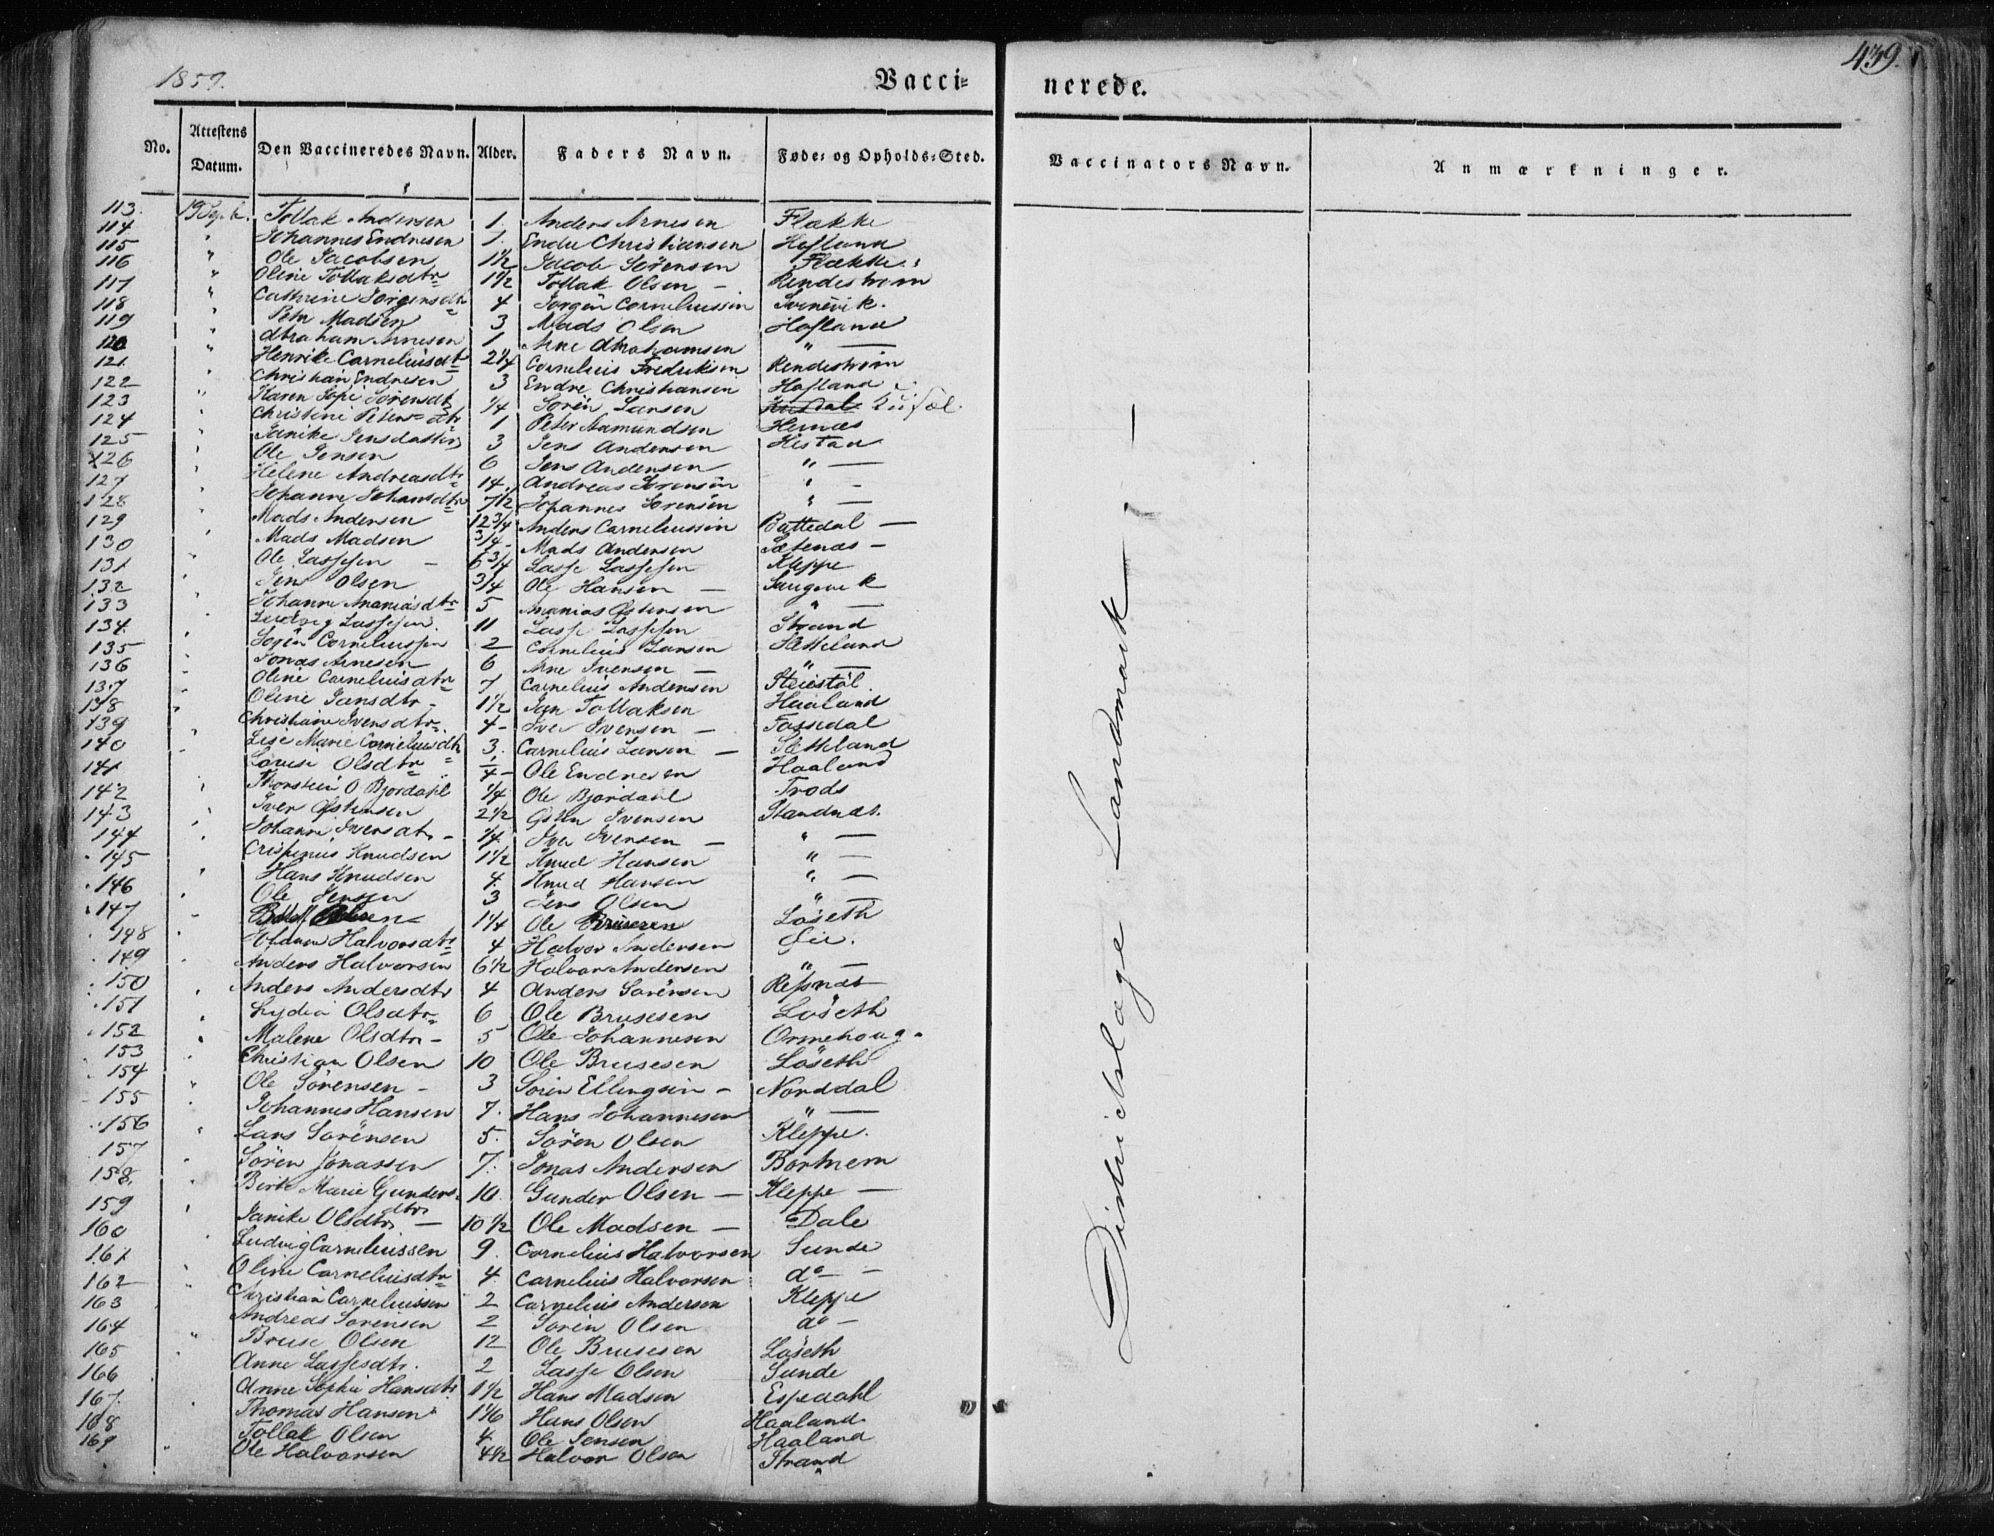 1857. Vacci= nerede. 439.
No. Attestens Datum. Den Vaccineredes Navn. Alder. Faders Navn. Føde= og Opholds=Sted. Vaccinators Navn. Anmærkninger.
113. 19 Sep. Tollak Andersen 1. Anders Arnesen Flække
114 " Johannes Endresen 1. Endre Christiansen Hofland
115 " Ole Jacobsen 1 1/2 Jacob Sørensen Flække
116 " Oline Tollaksdtr 1 1/2 Tollak Olsen — Rendestrøm
117 " Cathrine Jörgensdtr 4 Jorgen Corneliussen Svinevik.
118 " Petr Madsen 3 Mads Olsen Hofland
119 " Abraham Arnesen 1 Arne Abrahamsen " —
120 " Henrike Corneliusdtr 2 1/4 Cornelius Fredriksen Rendestrøm
121. " Christian Endresen 3 Endre Christiansen Hofland
122 " Karen Sofie Sørensdtr 1/4 Sörin Larsen
123 " Christine Petersdtr 1 Peter Aamundsen Hernæs
124 " Janike Jensdatter 3 Jens Andersen Hestad
125 " Ole Jensen 6 Jens Andersen " —
126 " Helene Andreasdtr 14. Andreas Sorensen " -
127 " Johanne Johansdtr 7 1/2 Johannes Sorensen " —
128 " Mads Andersen 12 3/4 Anders Corneliussen Battedal —
129 " Mads Madsen 3/4 - Mads Andersen Sætenæs -
130 " Ole Lassesen — 6 3/4 Lasse Lassesen Kleppe
131 " Jens Olsen 3/4 Ole Hansen —
132 " Johanne Ananiasdtr 5 Ananias Østensen " —
133 " Ludvig Lassesen. 11 Lasse Lassesen Strand
134. " Sorin Corneliussen 2 Cornelius Larsen Sletteland
135 " Jonas Arnesen 6 Arne Iversen — " —
136 " Oline Corneliusdtr 7 Cornelius Andersen Steiestöl
137 " Oline Jansdtr - 1 1/2 Jan Tollaksen Haaland
138 " Christiane Iversdtr. 4 - Iver Iversen — Fossedal
139 " Lise Marie Corneliusdtr 3. Cornelius Larsen — Sletteland
140 " Lovise Olsdtr 1/4 - Ole Endresen Haaland
141 " Thorstein O Bjordahl 1/4 Ole Bjordahl Trods
142 " Iver Østensen 2 1/2 Östen Iversen Standnæs.
143 " Johanne Iversdtr - 1/4. Iver Iversen — " —
144 " Crispinus Knudsen 1 1/2 Knud Hansen " —
145 " Hans Knudsen 4. Knud Hansen " —
146 " Ole Jensen 3 Jens Olsen " —
147 - 1 1/4 Ole Brusesen Löseth
148 " Johanne Halvorsdtr 4 Halvor Andersen
149 " Anders Halvorsen 6 1/2 Halvor Andersen " —
150 " Anders Andersdtr 4 Anders Sorensen Resnæs
151 " Lydia Olsdtr 6 Ole Brusesen Löseth
152 " Malene Olsdtr - 5 Ole Johannesen Ormehoug -
153 " Christian Olsen 10 Ole Brusesen Löseth
154 " Ole Sörensen - 3 Sorin Ellingsen - Norddal
155 " Johannes Hansen 7. Hans Johannesen " —
156 " Lars Sorensen 5. Sören Olsen Kleppe.
157 Sören Jonassen 7. Jonas Andersen
158. Berte Marie Gunders-dtr 10. Gunder Olsen — Kleppe —
159 " Janike Olsdtr — 10 1/2 Ole Madsen — Dale
160 " Ludvig Corneliussen 9. Cornelius Halvorsen Sunde
161 " Oline Corneliusdtr 4. Cornelius Halvorsen do —
162 " Christian Corneliussen 2 Cornelius Andersen Kleppe
163 Andreas Sorensen 2 Sorin Olsen do -
164 " Bruse Olsen 12 Ole Brusesen Löseth
165 Anne Lassesdtr. 2 Lasse Olsen Sunde
166 Anne Sophie Hansdtr 1 1/2 Hans Madsen Espedahl
167. Thomas Hansen 1 1/6 Hans Olsen Haaland
168 Tollak Olsen 4 Ole Jensen Haaland
169 " Ole Halvorsen 4 1/2 Halvor Olsen Strand
Districtslæge Landmark —